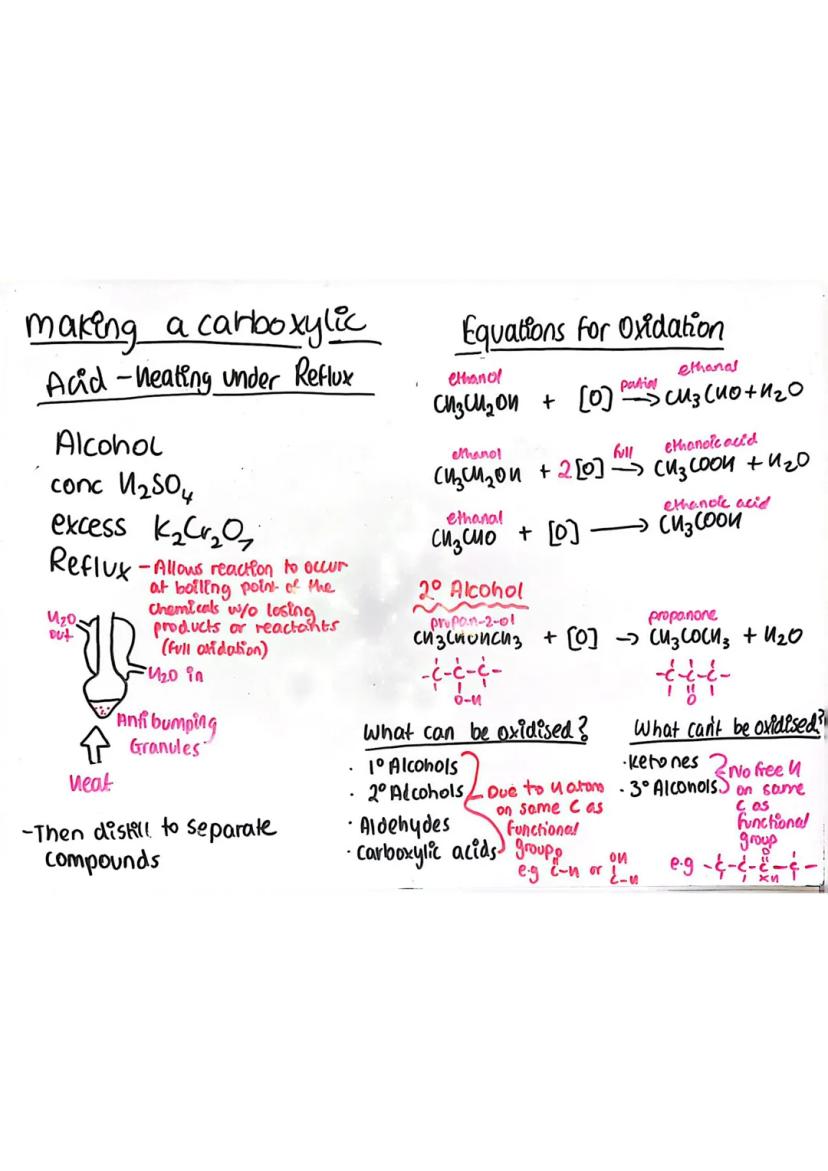 Making a carboxylic
Acid - Heating under Reflux
Alcohol
conc H₂SO₄
excess K₂Cr₂O₇
Reflux - Allows reaction to occur
at boiling point of the
chemicals w/o losing
products or reactants
(full oxidation)
H₂O
out
H₂O in
Anti bumping
Granules
Heat
- Then distill to separate
compounds
Equations for Oxidation
ethanol partial ethanal
CH₃CH₂OH + [O] → CH₃CHO + H₂O
ethanol full ethanoic acid
CH₃CH₂OH + 2[O] → CH₃COOH + H₂O
ethanal ethanoic acid
CH₃CHO + [O] → CH₃COOH
2° Alcohol
propan-2-ol propanone
CH₃CHOHCH₃ + [O] → CH₃COCH₃ + H₂O
-C-C-C- -C-C-C-
O-H O
What can be oxidised?
· 1° Alcohols
· 2° Alcohols
· Aldehydes
· Carboxylic acids
Due to H atom
on same C as
functional
group
e.g O C-H or OH C-H
What can't be oxidised?
· Ketones
· 3° Alcohols
No free H
on same
C as
functional
group
e.g -C-C-C-C-
O
XH